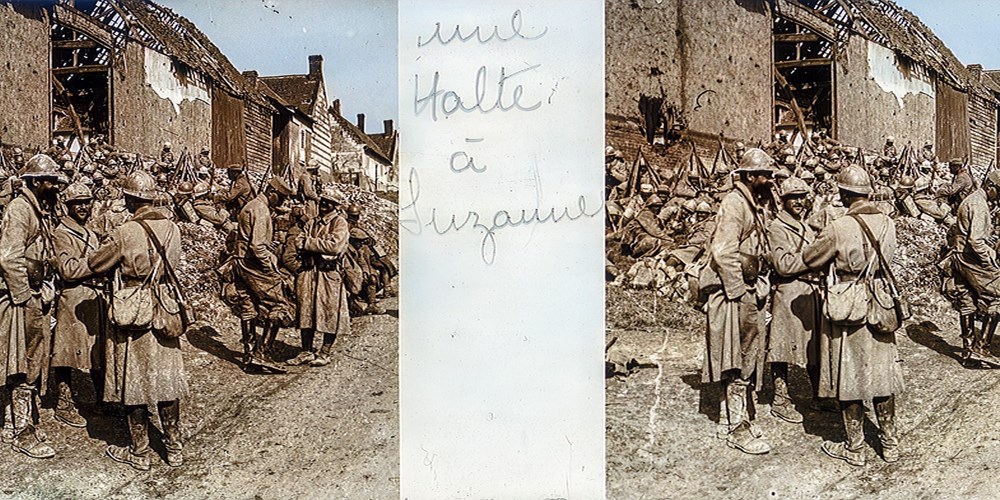 une
Halte
à
Suzanne